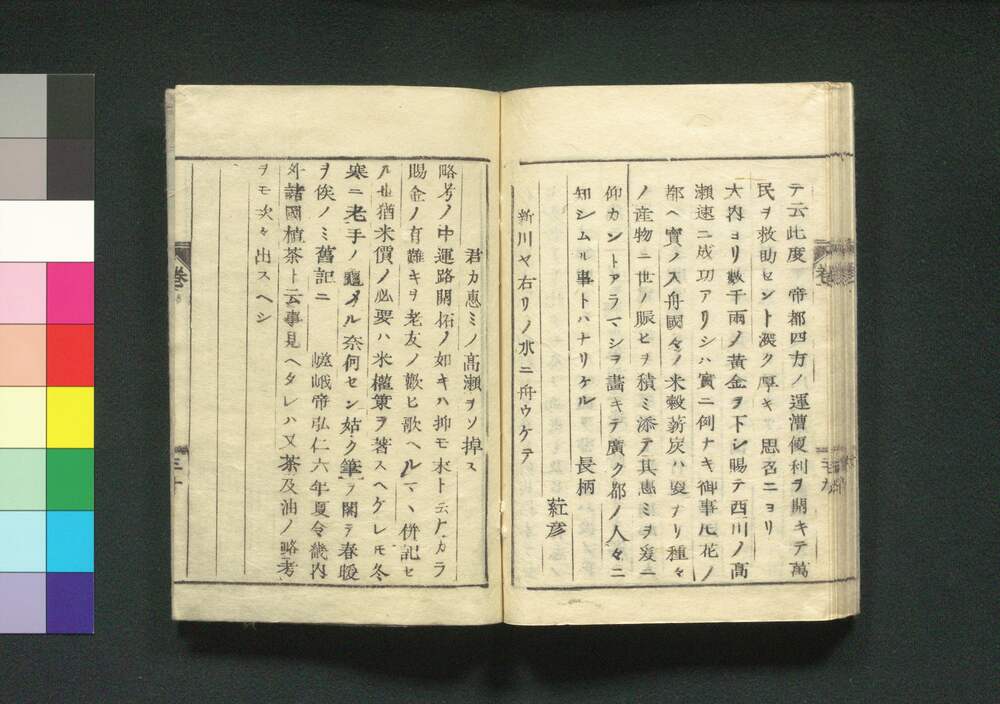 テ云此度 帝都四方ノ運漕便利ヲ開キテ萬
民ヲ救助セント深ク厚キ 思召ニヨリ
大内ヨリ数千両ノ黄金ヲ下シ賜テ西川ノ高
瀬速ニ成功アリシハ實ニ例ナキ御事ニ花ノ
都ヘ實ノ入舟國々ノ米穀薪炭ハ更ナリ種々
ノ産物ニ世ノ賑ヒヲ積ミ添テ其惠ミヲ爰ニ
仰カントアラマシヲ書キテ廣ク都ノ人々ニ
知シムル事トハナリケル 長柄
紅彦
新川ヤ右リノ水ニ舟ウケテ
君カ惠ミノ高瀬ヲソ掉ス
略考ノ中運路開拓ノ如キハ抑モ末ト云ヘカラ
賜金ノ有難キヲ老友ノ歡ヒ歌ヘルマヽ併記ヒ
ル也猶米價ノ必要ハ米權策ヲ著スヘケレモ冬
寒ニ老手ノ龜メル奈何セン姑ク筆ヲ閣テ春暖
ヲ俟ノミ舊記ニ 嵯峨帝弘仁六年夏令畿内
外諸國植茶ト云事見ヘタレハ又茶及油ノ略考
ヲモ次々出スヘシ
卷
卷
三十